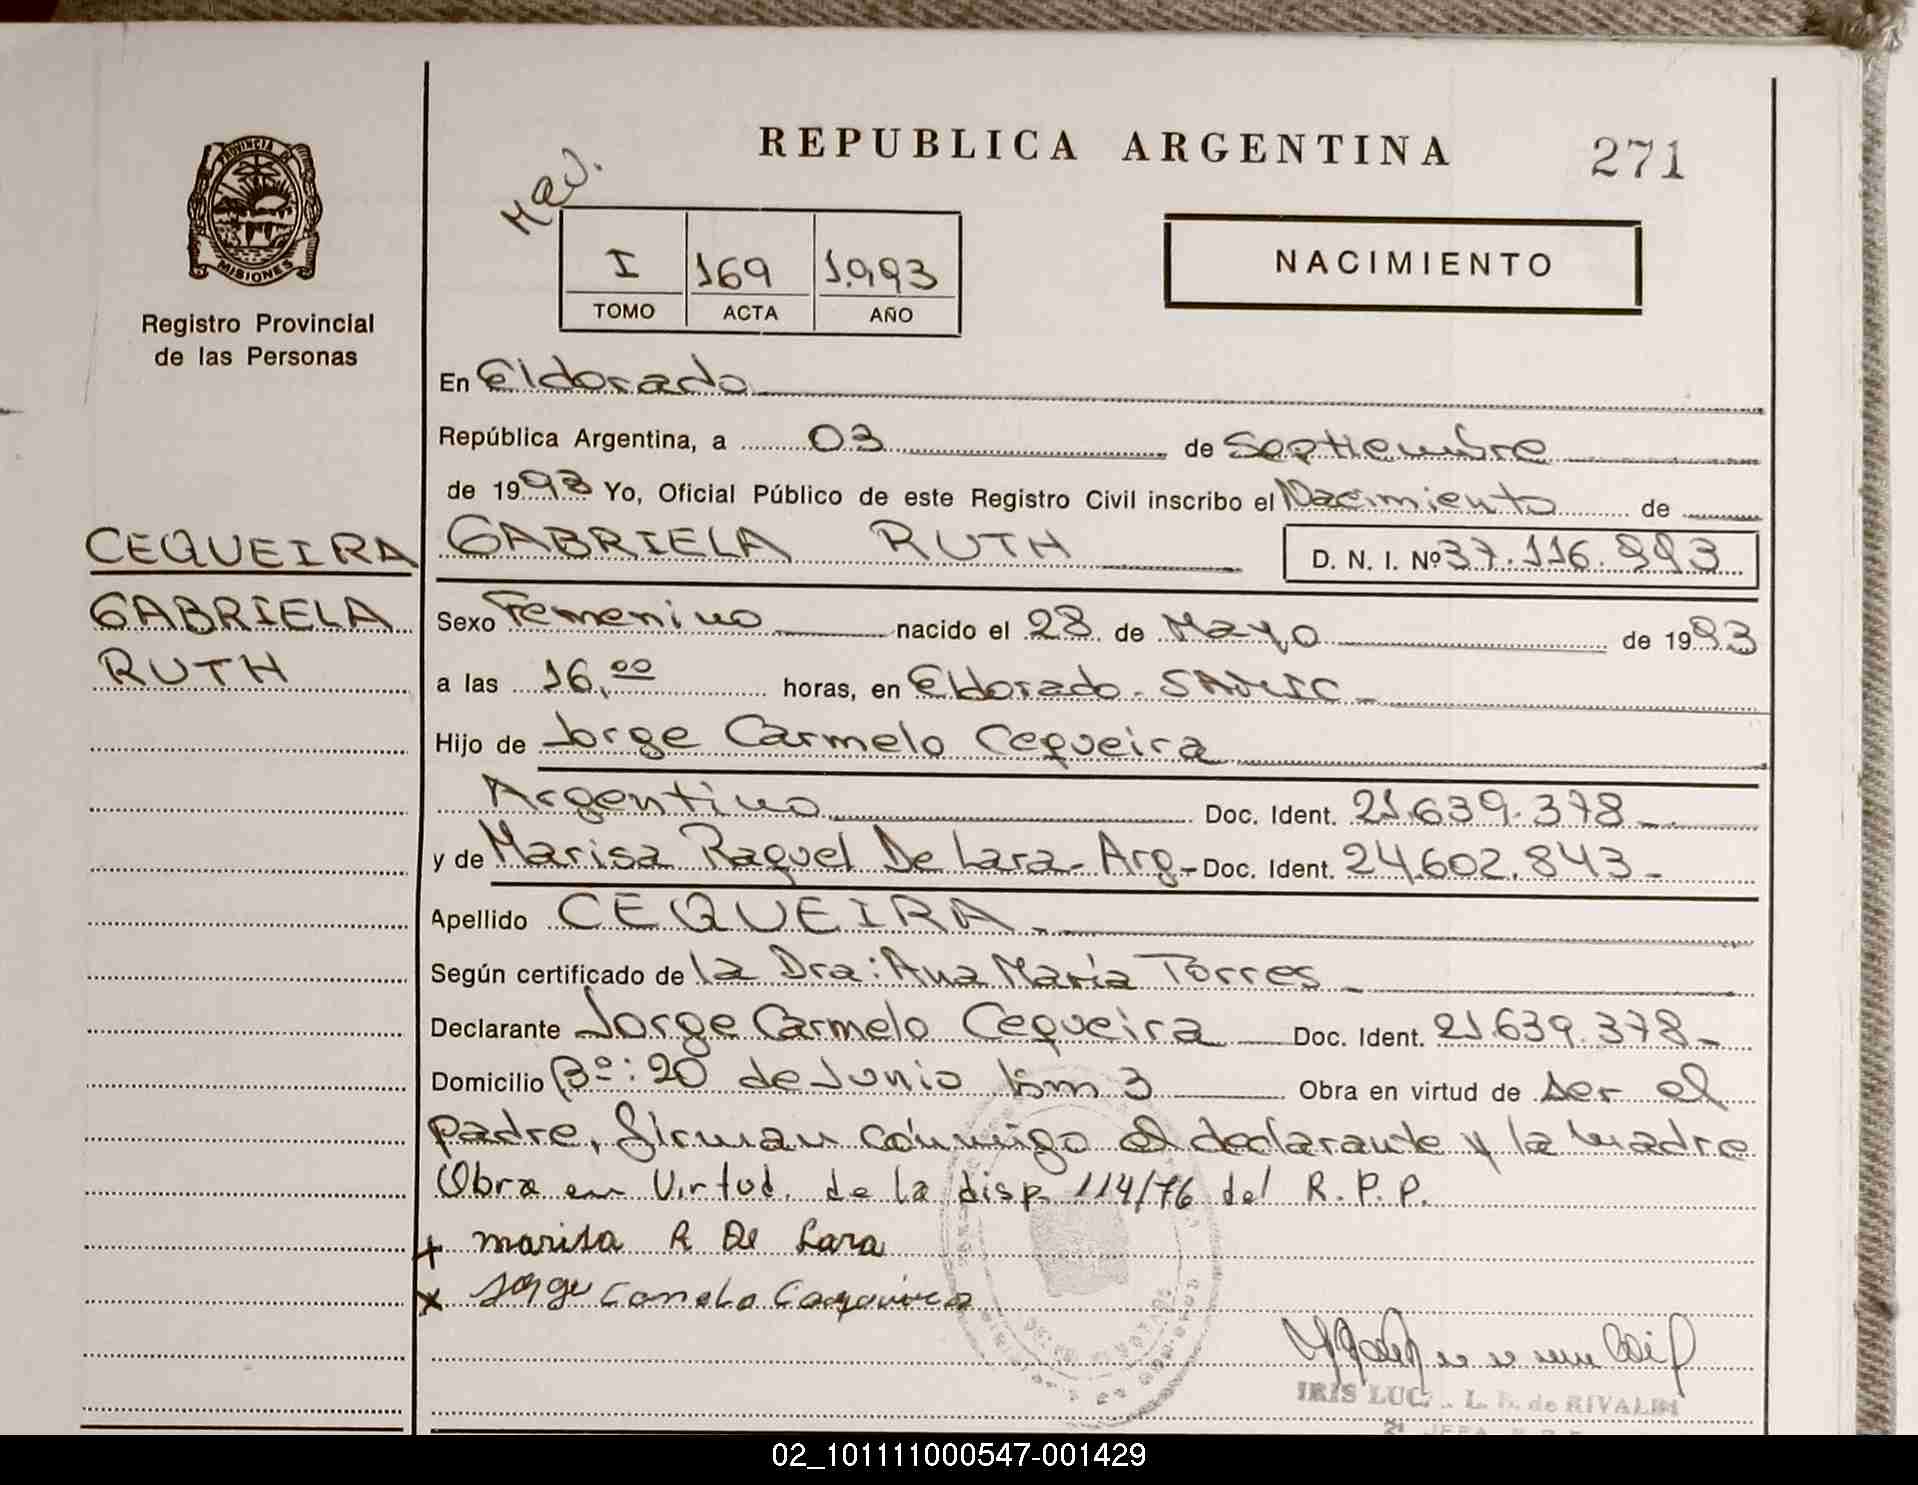 REPUBLICA ARGENTINA
271
PROVINCIA DE
MISIONES
Registro Provincial
de las Personas
I 169 1.993
TOMO ACTA AÑO
NACIMIENTO
En Eldorado
República Argentina, a 03 de Septiembre
de 1993 Yo, Oficial Público de este Registro Civil inscribo el Nacimiento de
CEQUEIRA
GABRIELA
RUTH
GABRIELA RUTH D. N. I. Nº 37.116.993
Sexo Femenino nacido el 28 de Mayo de 1993
a las 16,00 horas, en Eldorado - SAMIC
Hijo de Jorge Carmelo Cequeira
Argentino Doc. Ident. 21.639.378
y de Marisa Raquel De Lara - Arg - Doc. Ident. 24.602.843
Apellido CEQUEIRA
Según certificado de la Dra: Ana María Torres
Declarante Jorge Carmelo Cequeira Doc. Ident. 21.639.378
Domicilio Bº: 20 de Junio km 3 Obra en virtud de ser el
padre, firman conmigo el declarante y la madre
Obra en Virtud de la disp. 114/76 del R.P.P.
x marisa R De Lara
x Jorge Carmelo Cequeira
IRIS L. de RIVALDI
02_101111000547-001429